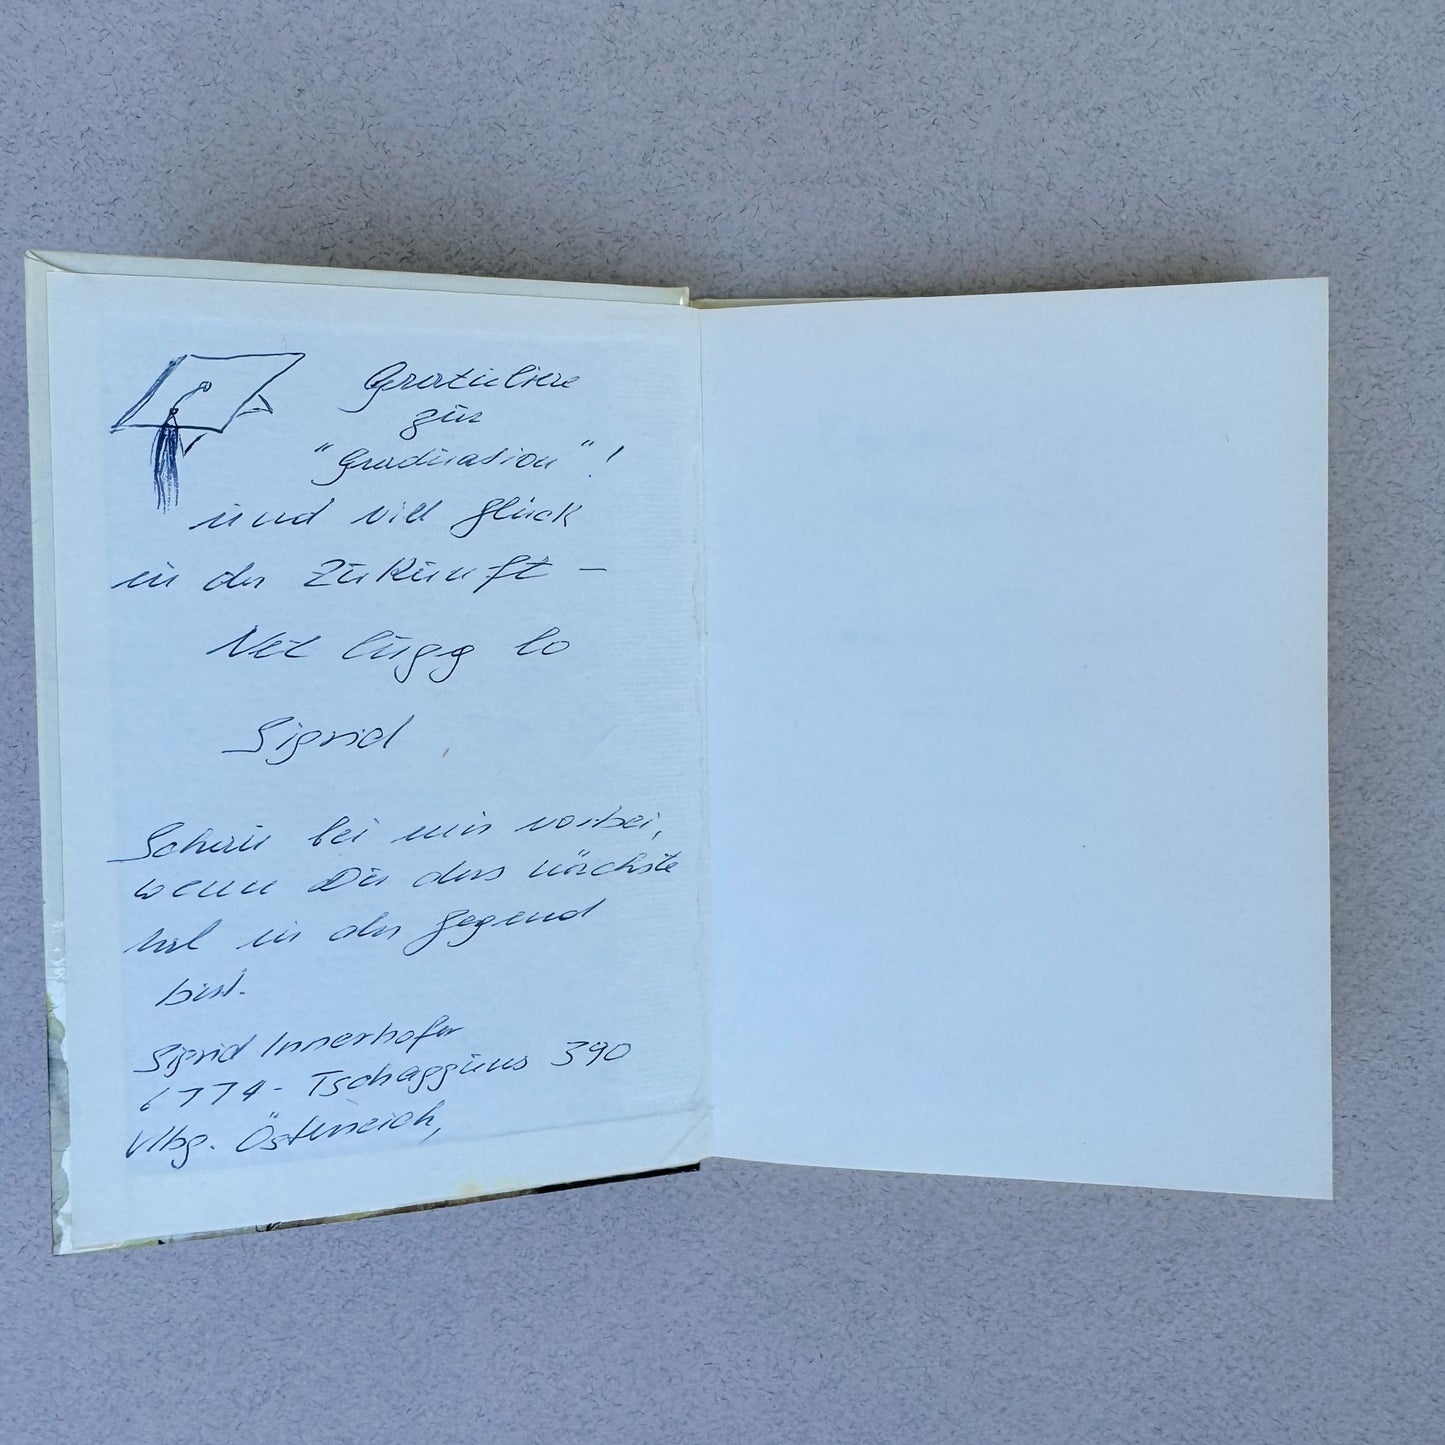 Gratuliere
zur
"Graduation"!
und viel Glück
in der Zukunft –
Net lugg lo
Sigrid
Schau bei mir vorbei,
wenn Du das nächste
Mal in der Gegend
bist.
Sigrid Innerhofer
6774 - Tschagguns 390
Vlbg. Österreich,